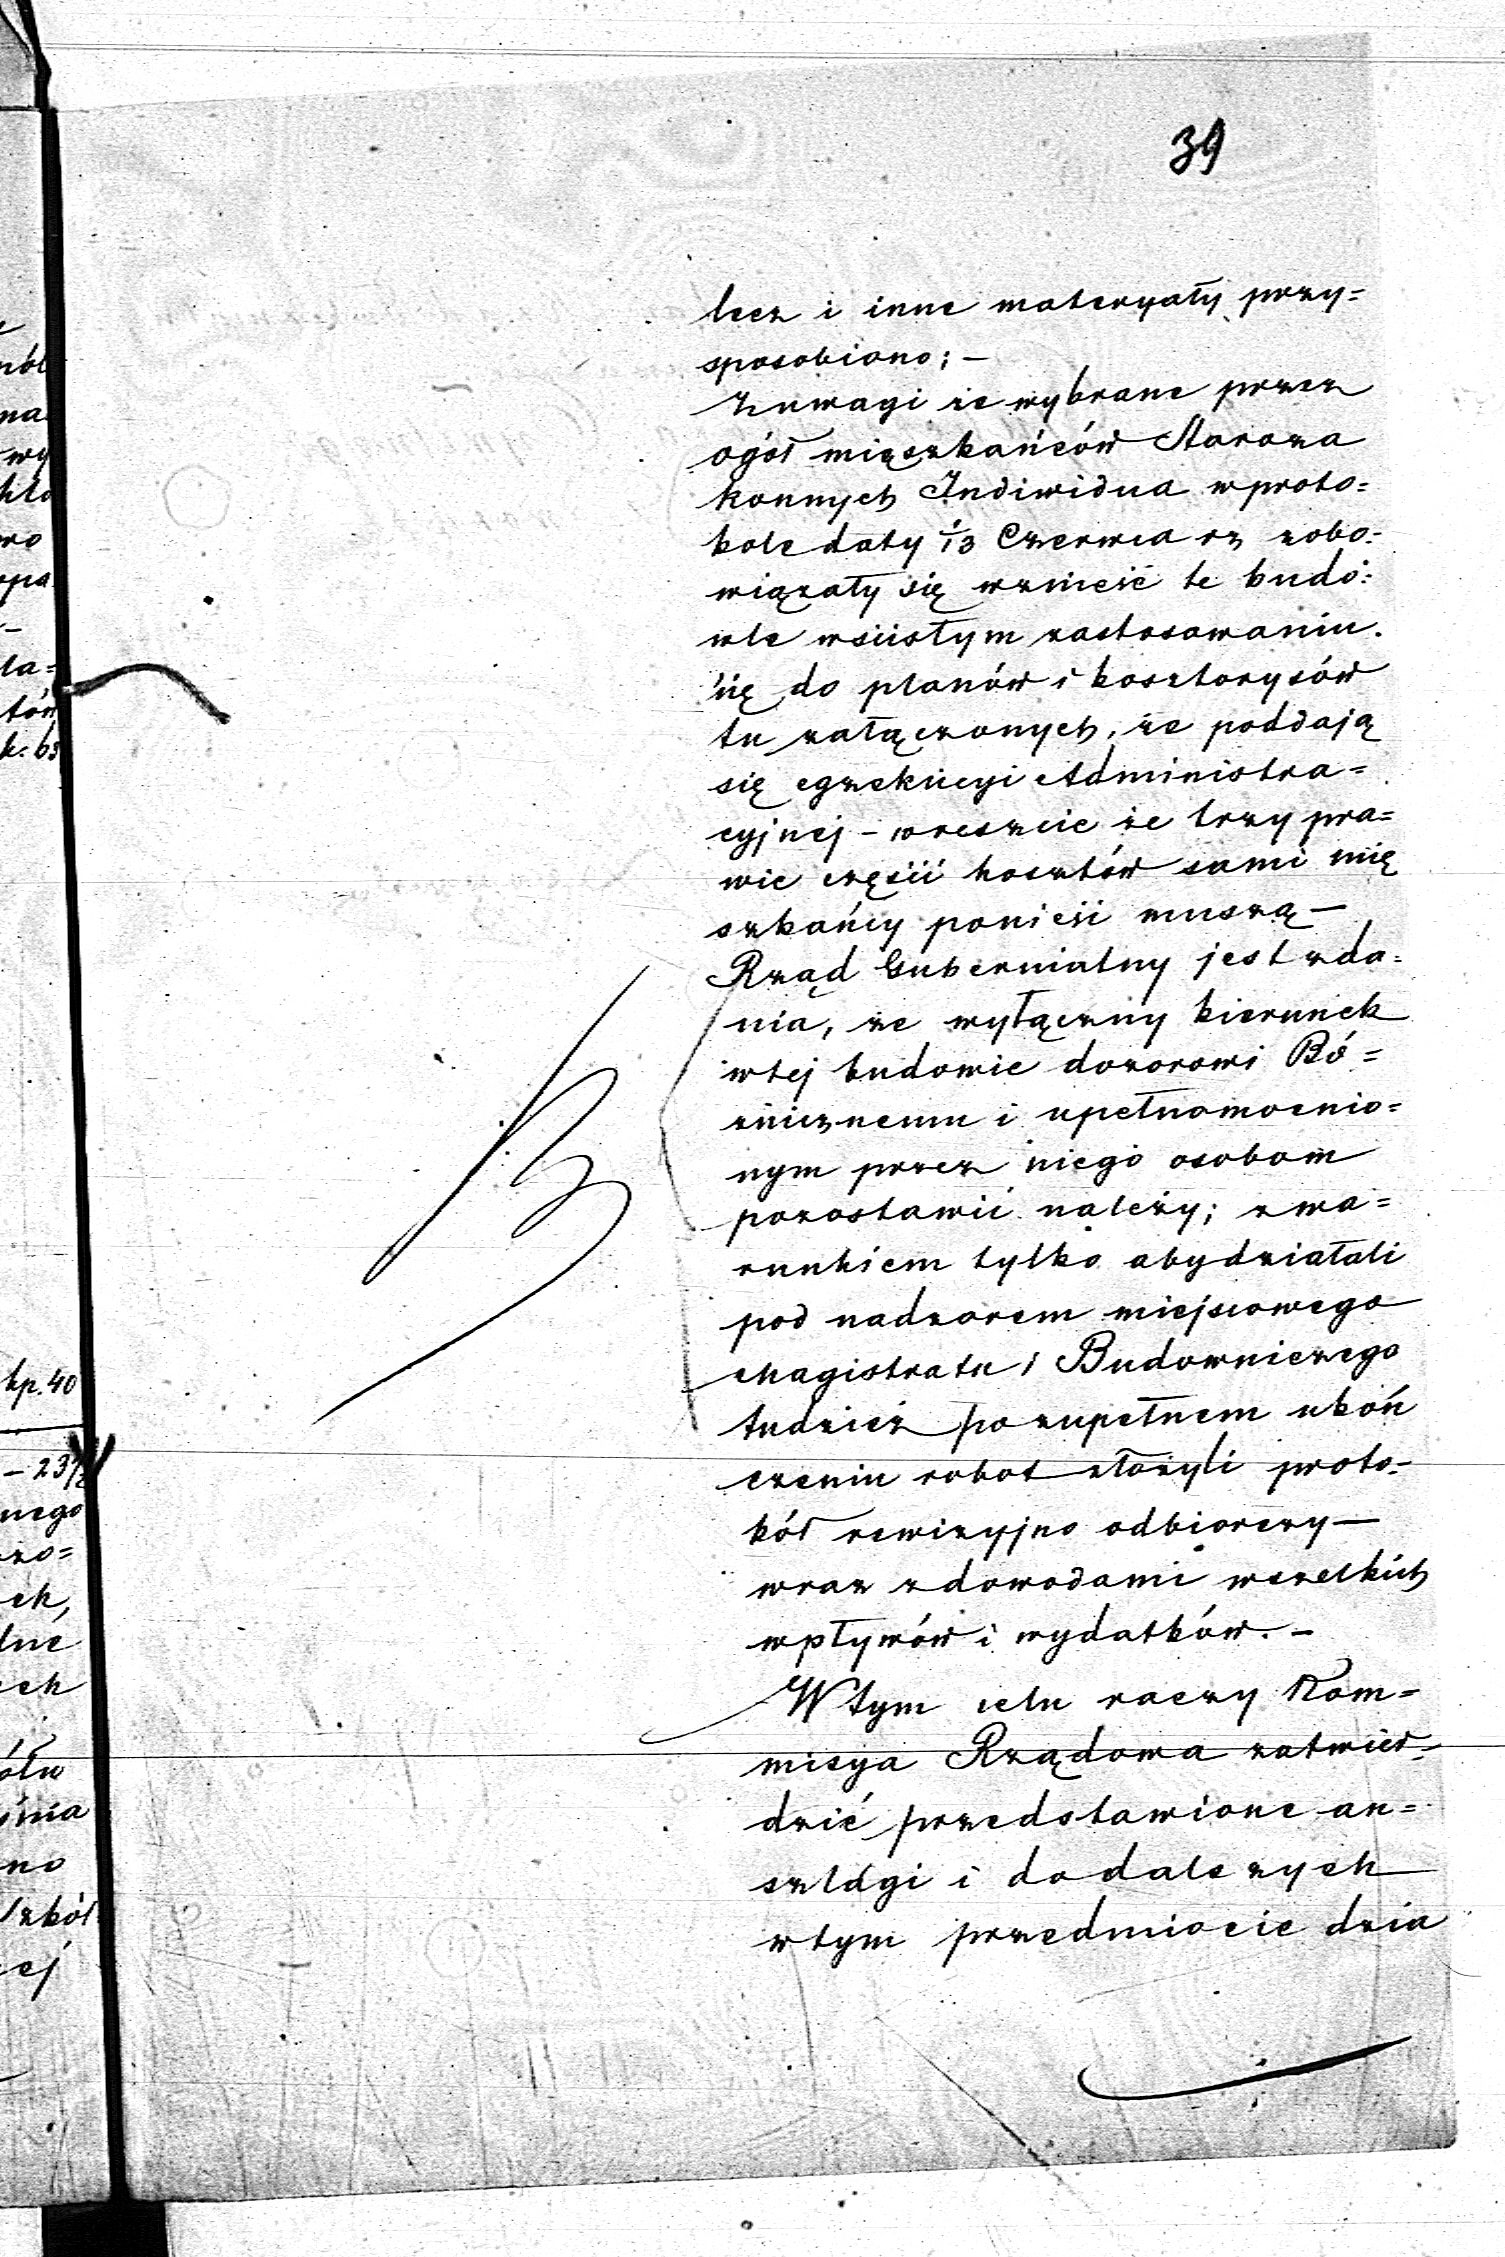 39
lecz i inne materyały przy=
sposobiono; —
Z uwagi że wybrane przez
ogół mięszkańców Staroza
konnych Indiwidua w proto=
kole daty 1/13 Czerwca rz zobo=
wiązały się wznieść te budo=
wle w ścisłym zastosowaniu
się do planów i kosztorysów
tu załączonych, że poddają
się egzekucyi Administra=
cyjnej – wreszcie że trzy pra=
wie części kosztów sami mię
szkańcy ponieść muszą —
Rząd Gubernialny jest zda=
nia, że wyłączny kierunek
w tej budowie dozorowi Bó=
żnicznemu i upełnomocnio=
nym przez niego osobom
pozostawić należy; z wa=
runkiem tylko aby działali
pod nadzorem miejscowego
Magistratu i Budowniczego
tudzież po zupełnem ukoń
czeniu robot złożyli proto=
kół rewizyjno odbiorczy —
wraz z dowodami wszelkich
wpływów i wydatków. –
W tym celu raczy Kom=
misya Rządowa zatwier=
dzić przedstawione an=
szlagi i do dalszych
w tym przedmiocie dzia
kp. 40
nego